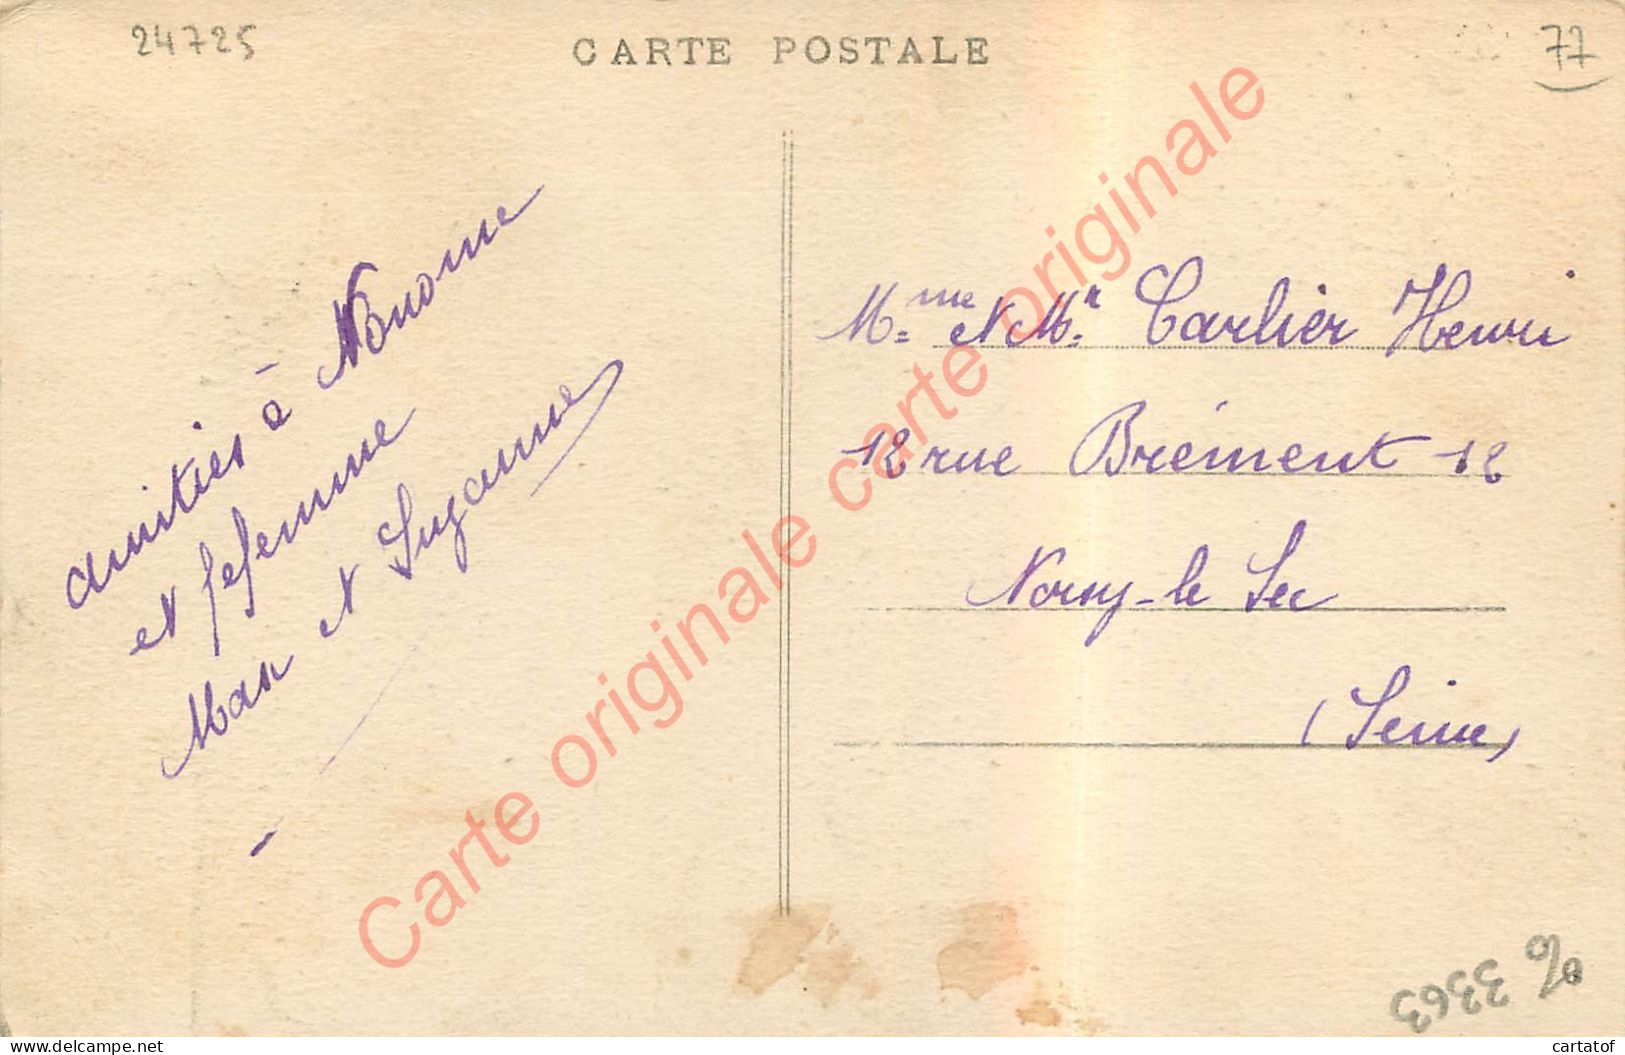 24725
CARTE POSTALE
77
amitiés à
et fefemme
Max et Suzanne
Mme et Mr Carlier Henri
12 rue Brément 12
Noisy-le Sec
(Seine)
Carte originale carte originale
% 3363
delcampe.net
cartatof